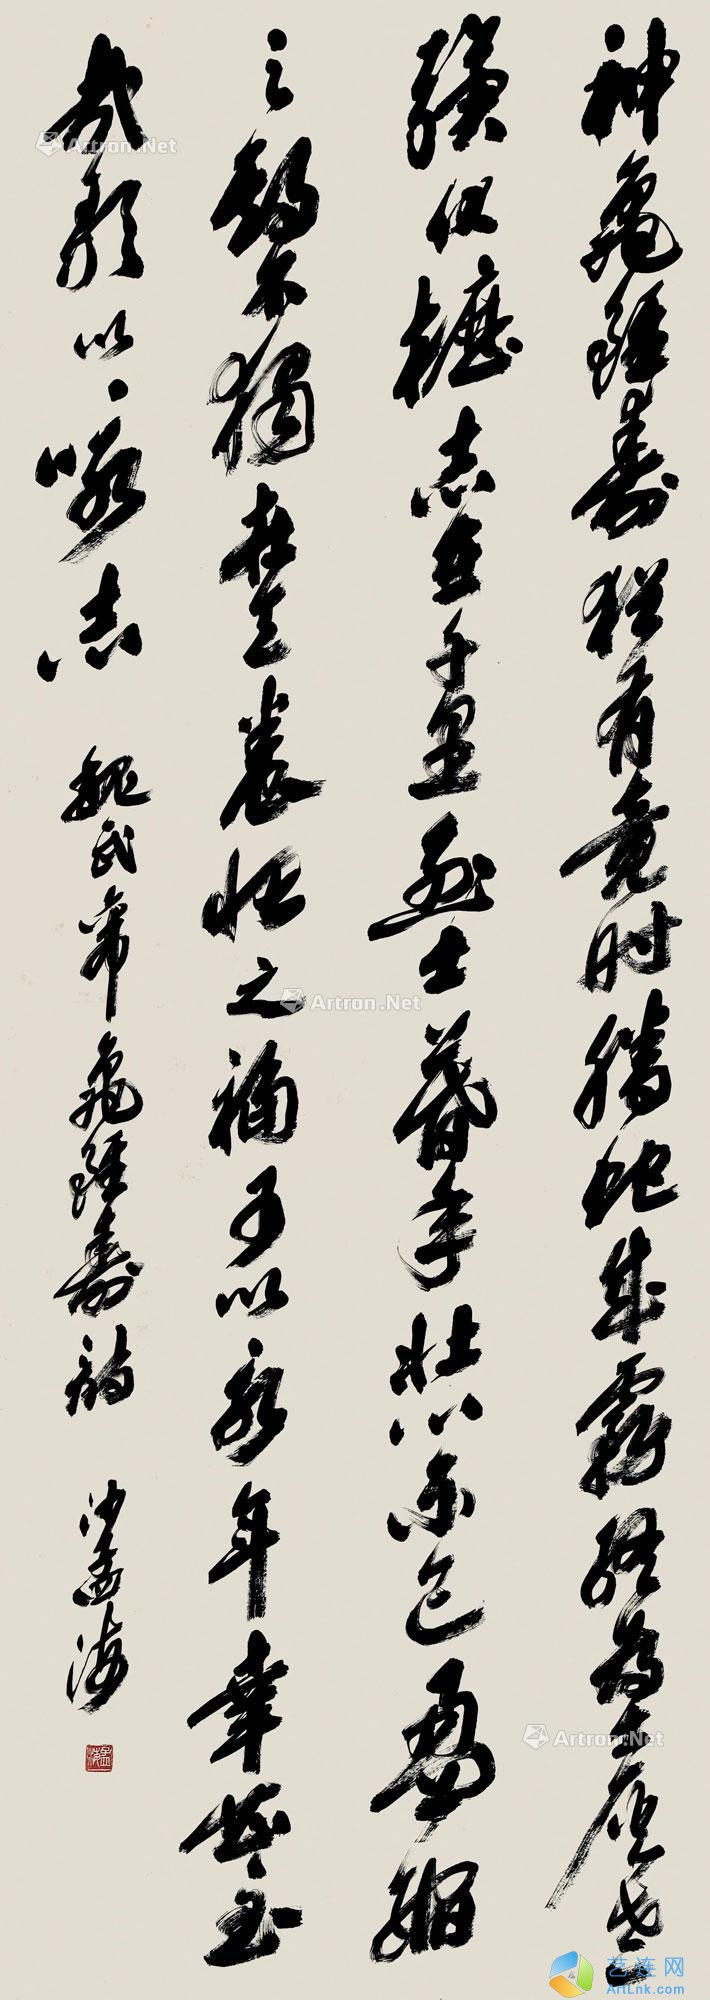 神龜雖壽猶有竟時騰蛇乘霧終為土灰老
驥伏櫪志在千里烈士暮年壯心不已盈縮
之期不獨在天養怡之福可以永年幸甚至
哉歌以詠志 魏武帝龜雖壽詩 沙孟海
Artron.Net
Artron.Net
Artron.Net
Artron.Net
艺连网
ArtLnk.com